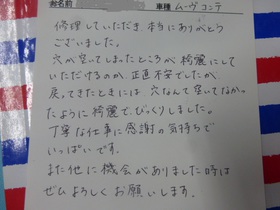 お名前 車種 ムーヴコンテ
修理していただき、本当にありがとう
ございました。
穴が空いてしまったところが綺麗にして
いただけるのか、正直不安でしたが、
戻ってきたときには穴なんて空いてなかっ
たように綺麗で、びっくりしました。
丁寧な仕事に感謝の気持ちで
いっぱいです。
また他に機会がありました時は
ぜひよろしくお願いします。